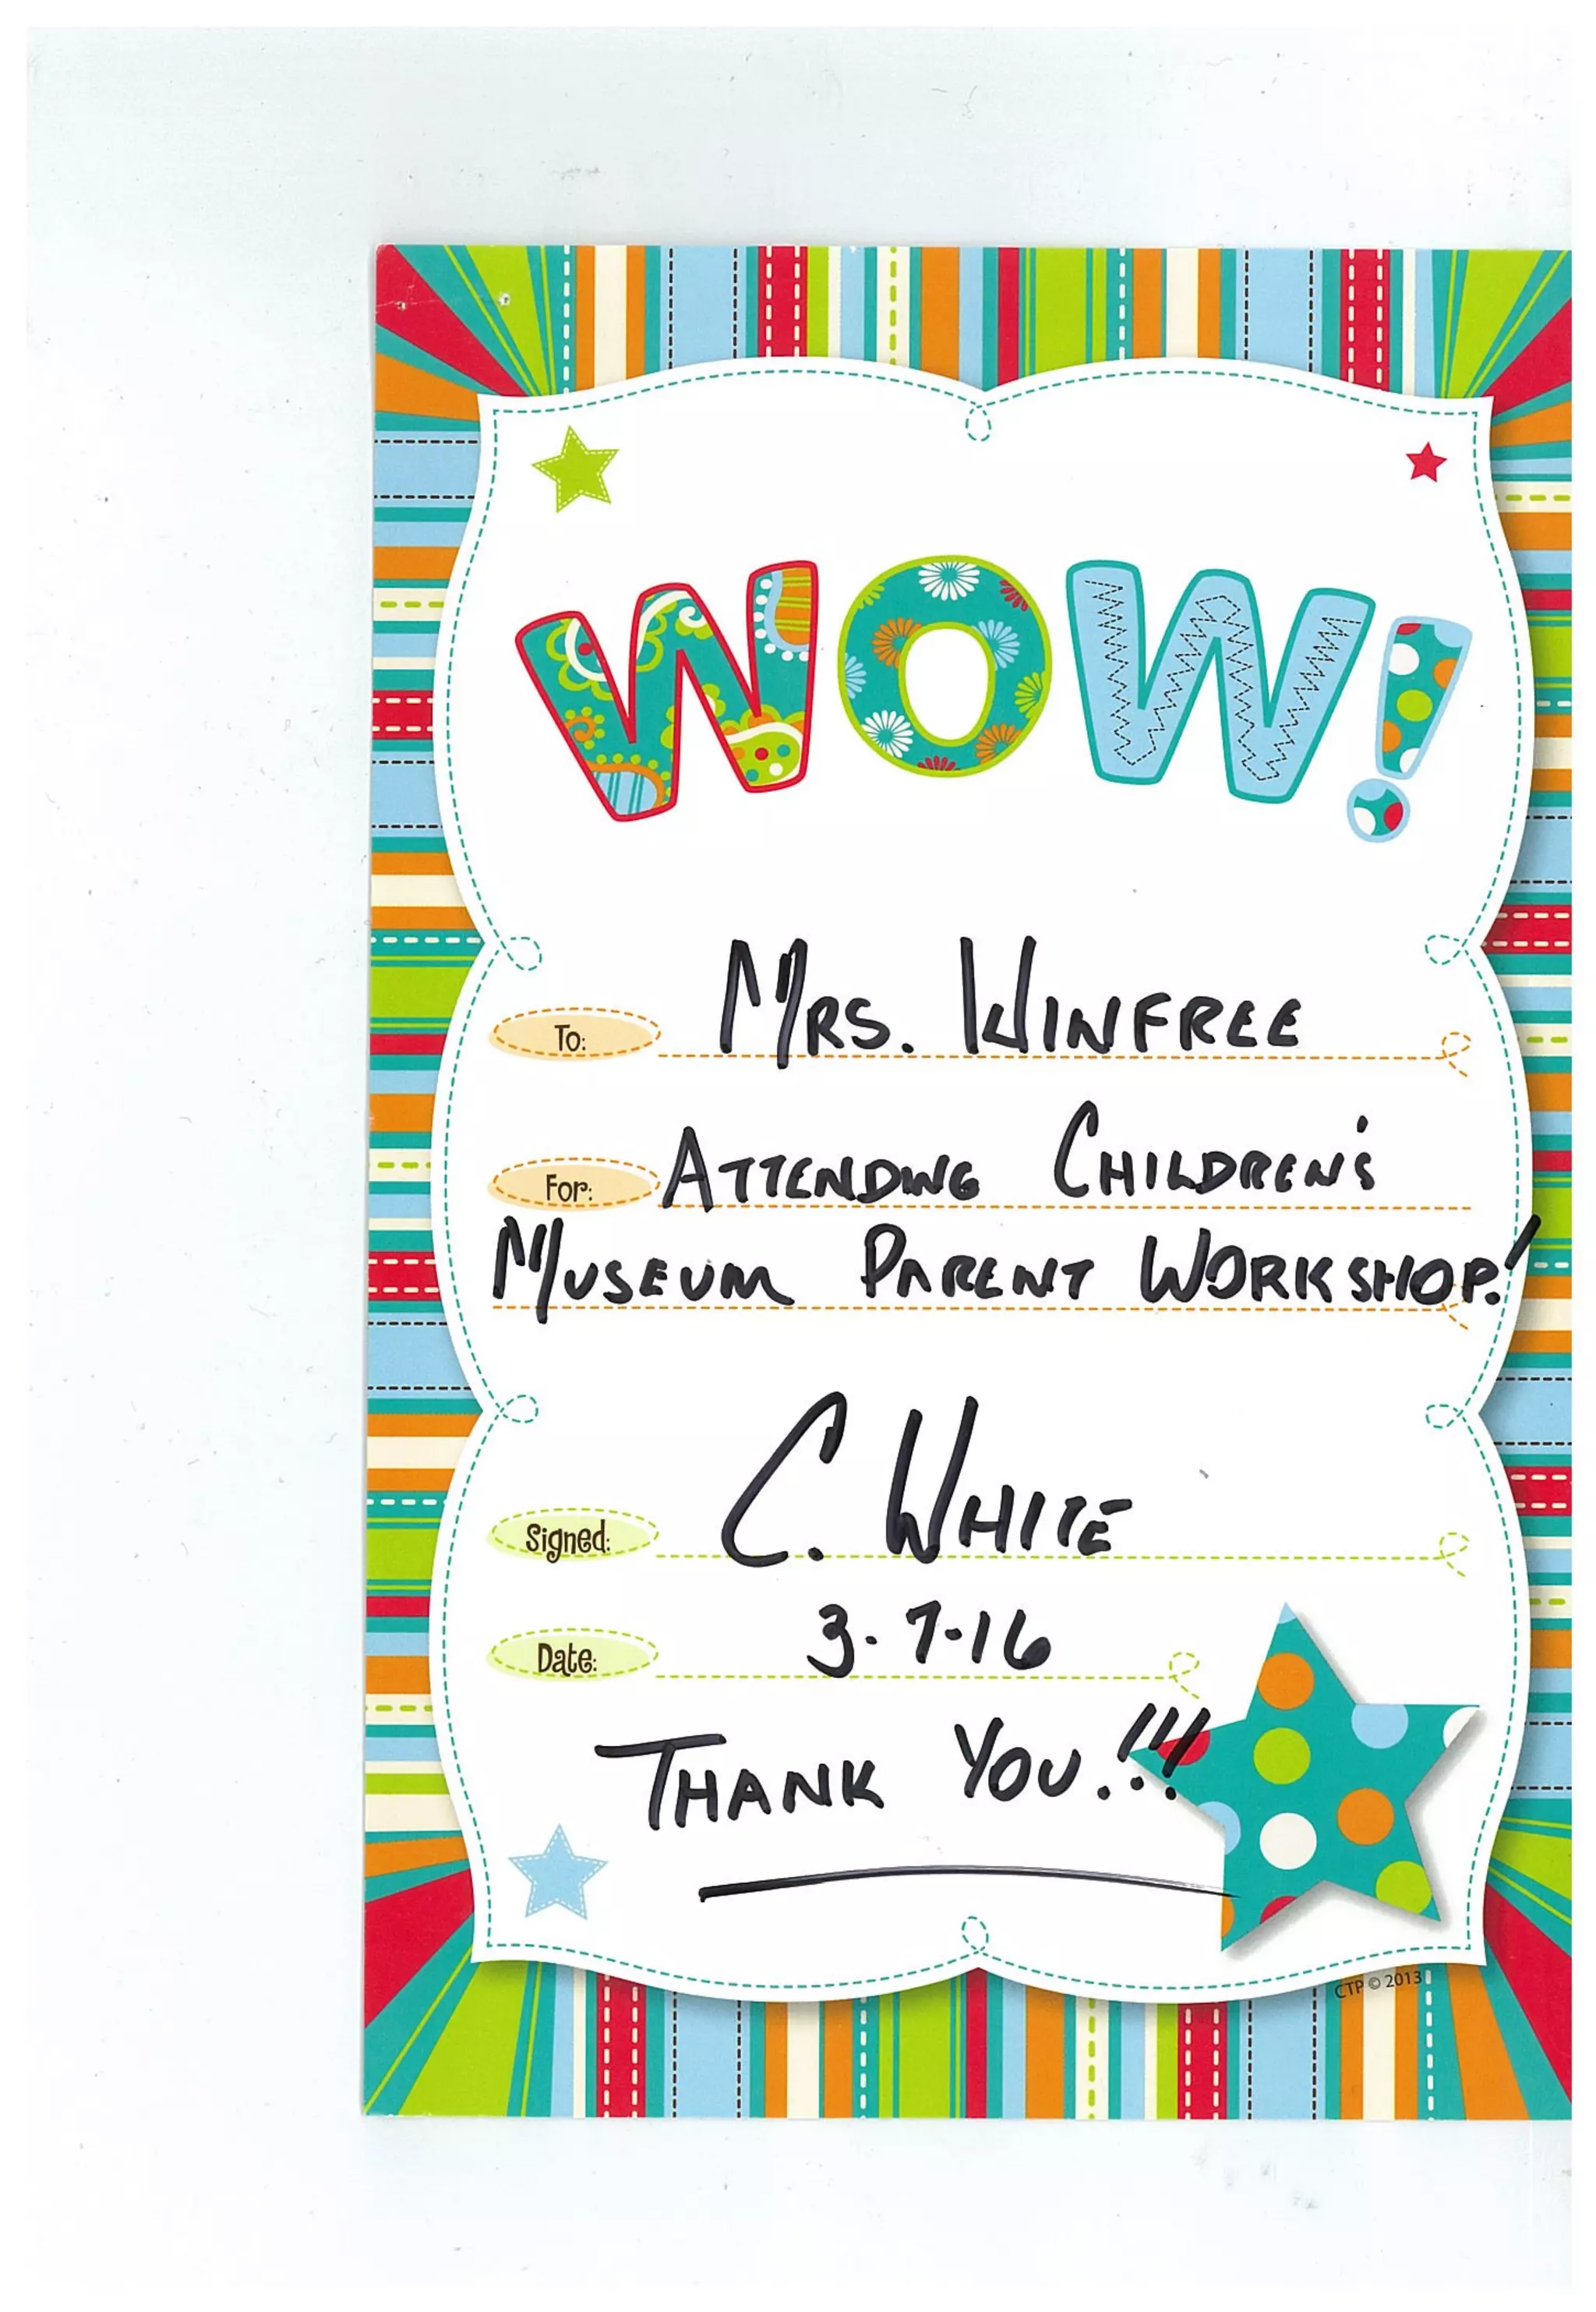 WOW!
To: MRS. WINFREE
For: ATTENDING CHILDREN'S
MUSEUM PARENT WORKSHOP!
Signed: C. WHITE
Date: 3-7-16
THANK YOU!!!
CTP © 2013